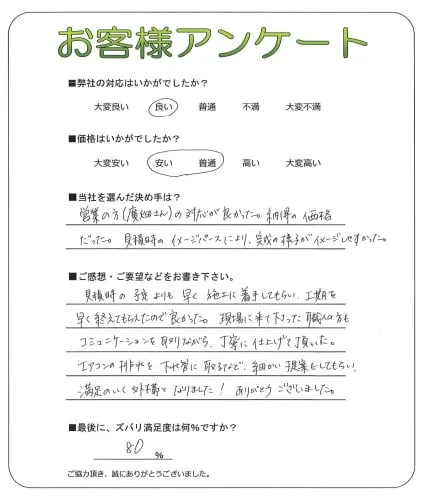 お客様アンケート
■弊社の対応はいかがでしたか？
大変良い 良い 普通 不満 大変不満
■価格はいかがでしたか？
大変安い 安い 普通 高い 大変高い
■当社を選んだ決め手は？
営業の方(廣畑さん)の対応が良かった。納得の価格
だった。見積時のイメージパースにより、完成の様子がイメージしやすかった。
■ご感想・ご要望などをお書き下さい。
見積時の予定よりも早く施工に着手してもらい、工期を
早く終えてもらえたので良かった。現場に来て下さった職人の方も
コミュニケーションを取りながら、丁寧に仕上げて頂いた。
エアコンの排水を下水管に取るなど、細かい提案もしてもらい、
満足のいく外構となりました！ありがとうございました。
■最後に、ズバリ満足度は何%ですか？
80 %
ご協力頂き、誠にありがとうございました。